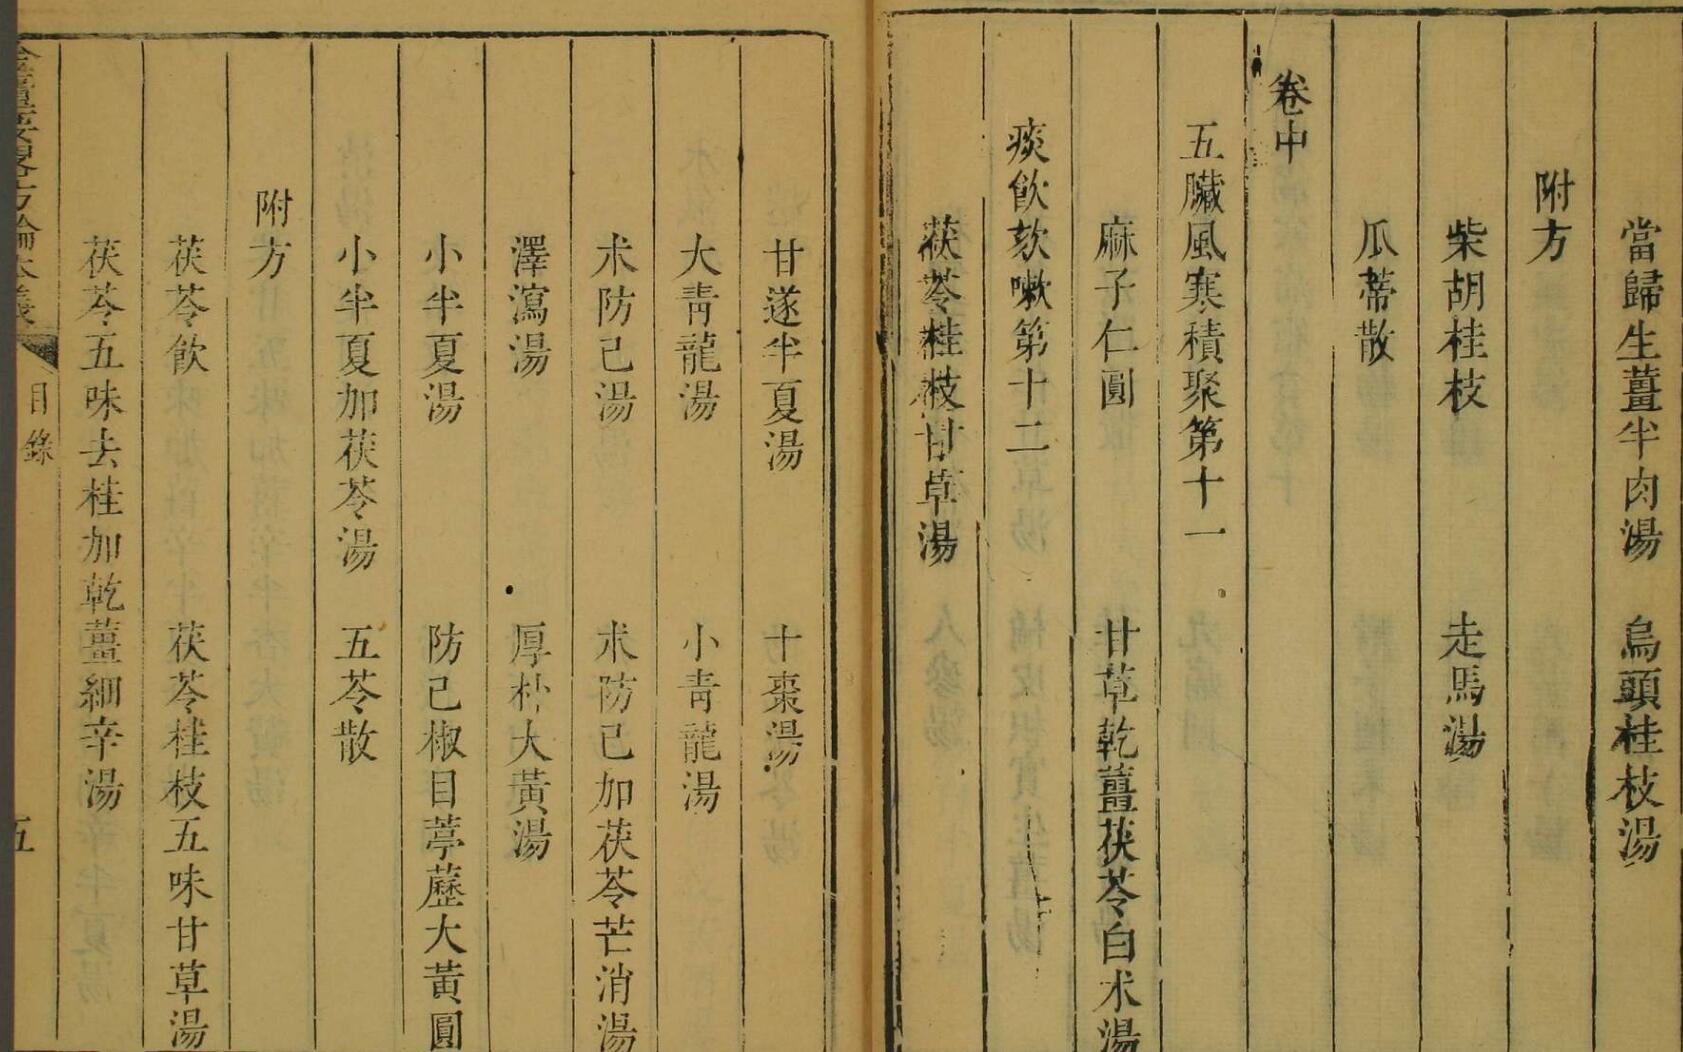 當歸生薑半肉湯　烏頭桂枝湯
附方
柴胡桂枝　走馬湯
瓜蒂散
卷中
五臟風寒積聚第十一
麻子仁圓　甘草乾薑茯苓白朮湯
痰飲欬嗽第十二
茯苓桂枝甘草湯
甘遂半夏湯　十棗湯
大青龍湯　小青龍湯
木防己湯　木防己加茯苓芒消湯
澤瀉湯　厚朴大黃湯
小半夏湯　防己椒目葶藶大黃圓
小半夏加茯苓湯　五苓散
附方
茯苓飲　茯苓桂枝五味甘草湯
茯苓五味去桂加乾薑細辛湯
目錄
五